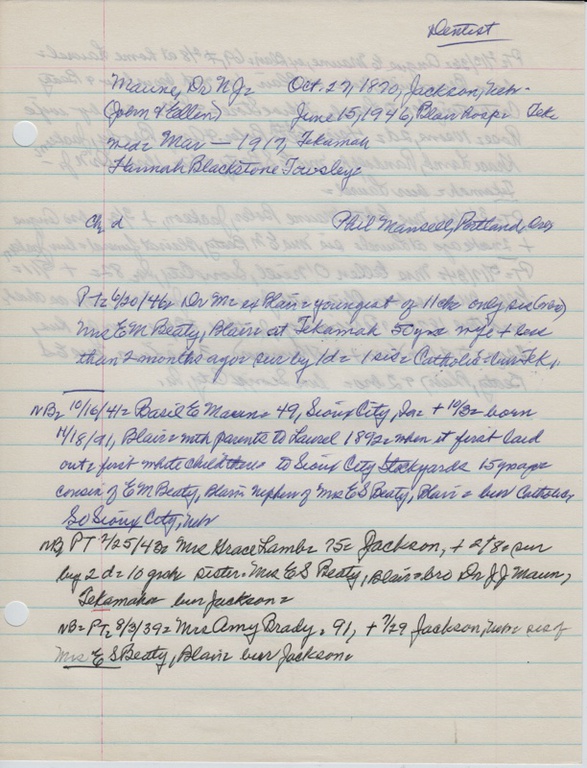 Dentist
Maune, Dr N J= Oct. 27, 1870, Jackson, Neb-
(John & Ellen) June 15, 1946, Blair Hosp= Tek.
med= Mar — 1917, Tekamah
Hannah Blackstone Towsley=
Ch d Phil Mansell, Portland, Oreg
PT= 6/20/46= Dr M= ex Blair= youngest of 11 ch= only sis (now)
Mrs E M Beaty, Blair= at Tekamah 50 yrs= wife + less
than 2 months ago= sur by 1 d= 1 sis= Catholic= bur Tek.
NB= 10/16/41= Basil E Maun= 49, Sioux City, Ia= + 10/3= born
11/18/91, Blair= with parents to Laurel 1892= when it first laid
out= first white child there= to Sioux City Stockyards 15 yrs ago=
cousin of E M Beaty, Blair= nephew of Mrs E S Beaty, Blair= bur Catholic,
So Sioux City, Neb
NB PT 2/25/43= Mrs Grace Lamb= 75= Jackson, + 2/8= sur
by 2 d= 10 grch= sister= Mrs E S Beaty, Blair= bro Dr J J Maun,
Tekamah= bur Jackson=
NB= PT= 8/3/39= Mrs Amy Brady= 91, + 7/29 Jackson, Neb= sis of
Mrs E S Beaty, Blair= bur Jackson=